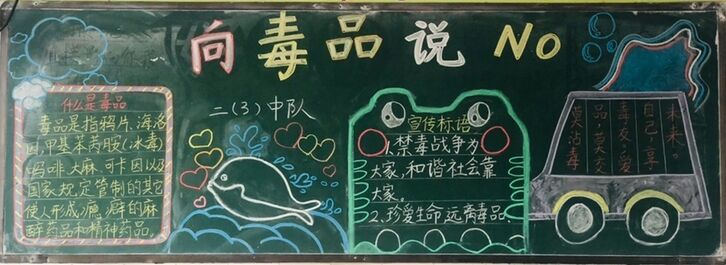 向毒品说No
什么是毒品
毒品是指鸦片、海洛
因、甲基苯丙胺(冰毒)
吗啡、大麻、可卡因以及
国家规定管制的其它
使人形成瘾癖的麻
醉药品和精神药品。
二(3)中队
宣传标语
1、禁毒战争为
大家,和谐社会靠
大家。
2、珍爱生命远离毒品
莫沾毒
品,莫交
毒友。爱
自己,享
未来。